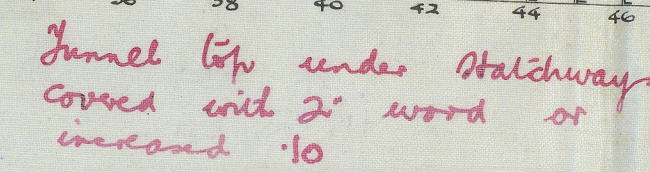 36 38 40 42 44 46
Tunnel top under Hatchways
covered with 2" wood or
increased .10